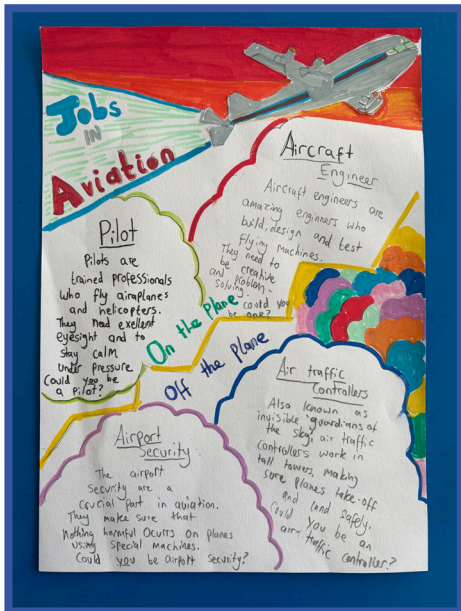 Jobs
IN
Aviation
Aircraft
Engineer
Aircraft engineers are
amazing enginners who
build, design and test
flying machines.
They need to
be creative
and problem-
solving.
Could you
be one?
Pilot
Pilots are
trained professionals
who fly airaplanes
and helicopters.
They need exellent
eyesight and to
stay calm
under pressure
Could you be
a pilot?
On the Plane
Off the Plane
Air traffic
Controllers
Also known as
invisible guardians of
the sky, air traffic
controllers work in
tall towers, making
sure planes take-off
and land safely.
Could you be an
air traffic controller?
Airport
Security
The airport
Security are a
crucial part in aviation.
They make sure that
nothing harmful ocurrs on planes
using special machines.
Could you be airport security?